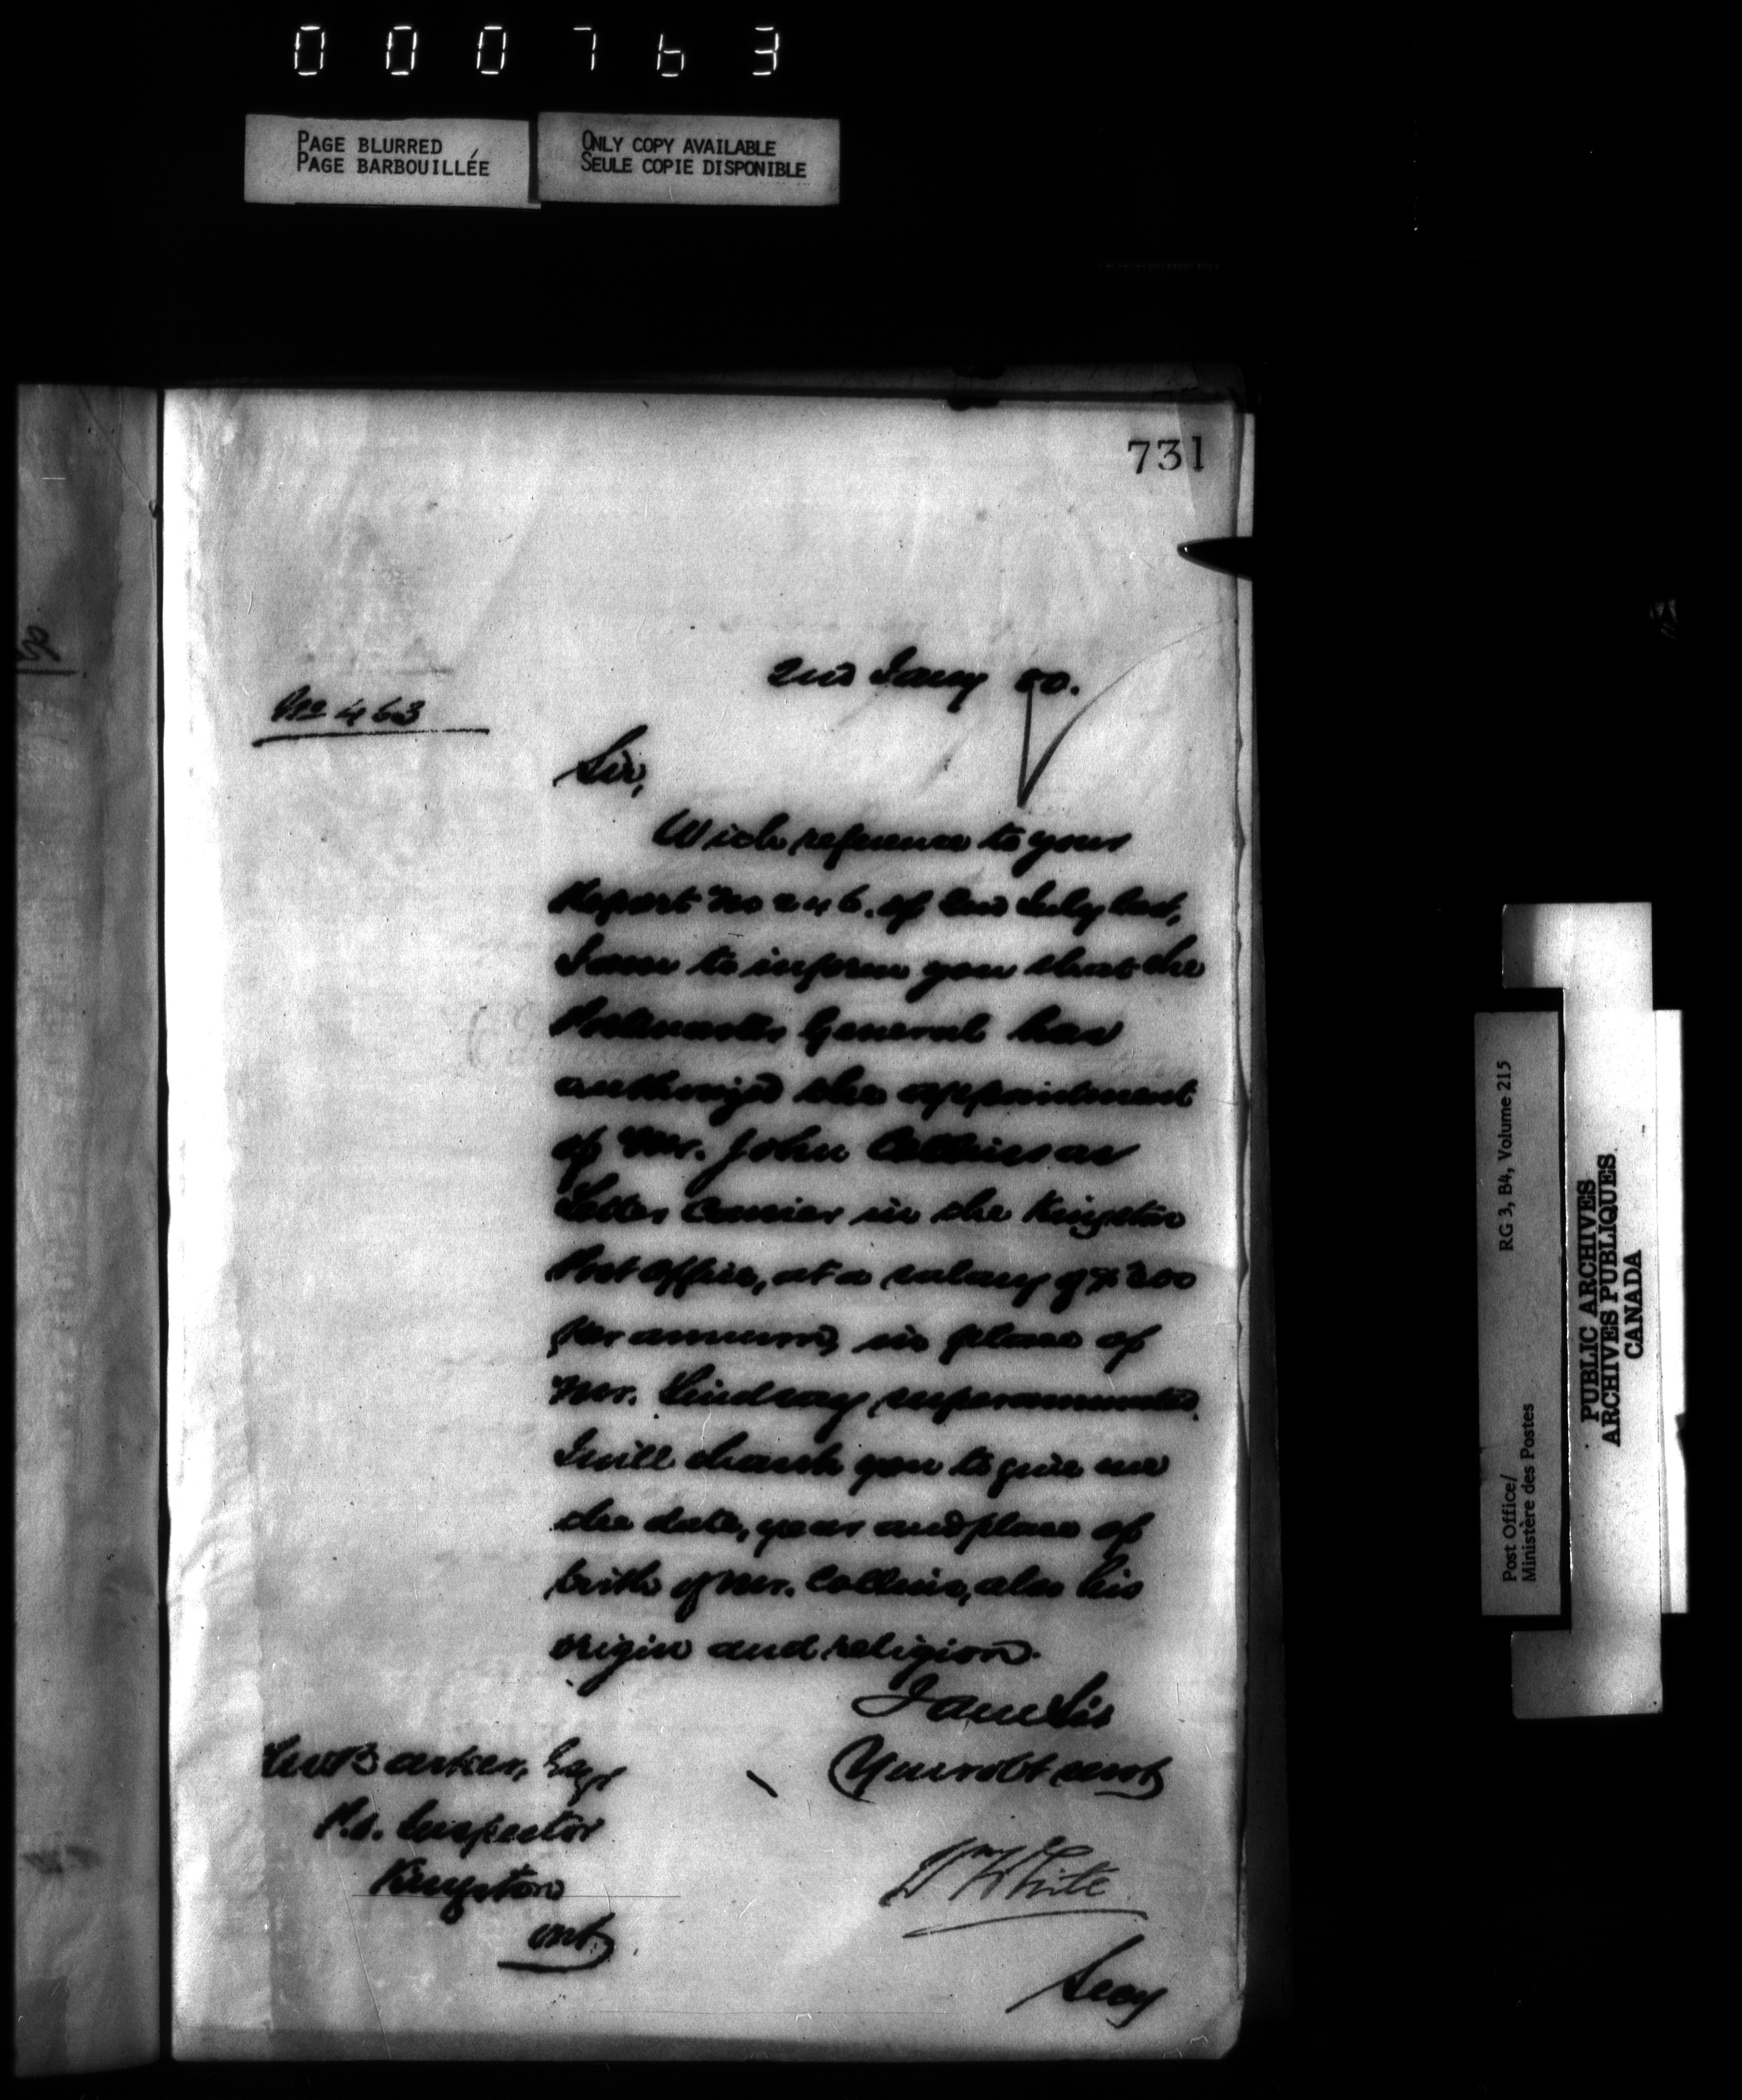 000763
PAGE BLURRED
PAGE BARBOUILLÉE
ONLY COPY AVAILABLE
SEULE COPIE DISPONIBLE
731
2nd Jany 80.
No 463
Sir,
With reference to your
Report No 246. of 2nd July last,
I am to inform you that the
Postmaster General has
authorized the appointment
of Mr. John Collins as
Letter Carrier in the Kingston
Post Office, at a salary of $300
per annum, in place of
Mr. Lindsay superannuated.
I will thank you to give me
the date, year and place of
birth of Mr. Collins, also his
origin and religion.
I am Sir
Your obt servt
Barker, Esqr
P.O. Inspector
Kingston
Ont
Wm White
Secy
RG 3, B4, Volume 215
Post Office/
Ministère des Postes
PUBLIC ARCHIVES
ARCHIVES PUBLIQUES
CANADA